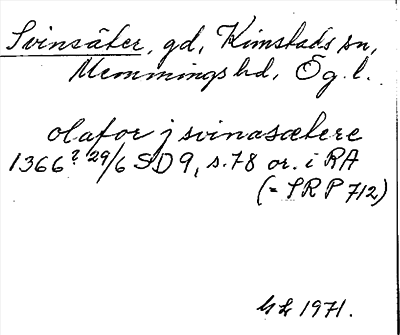 Svinsäter, gd, Kimstads sn,
Memmings hd, Ög. l.
olafor j svinasætere
1366? 29/6 SD 9, s. 78 or. i RA
(= SRP 712)
1971.